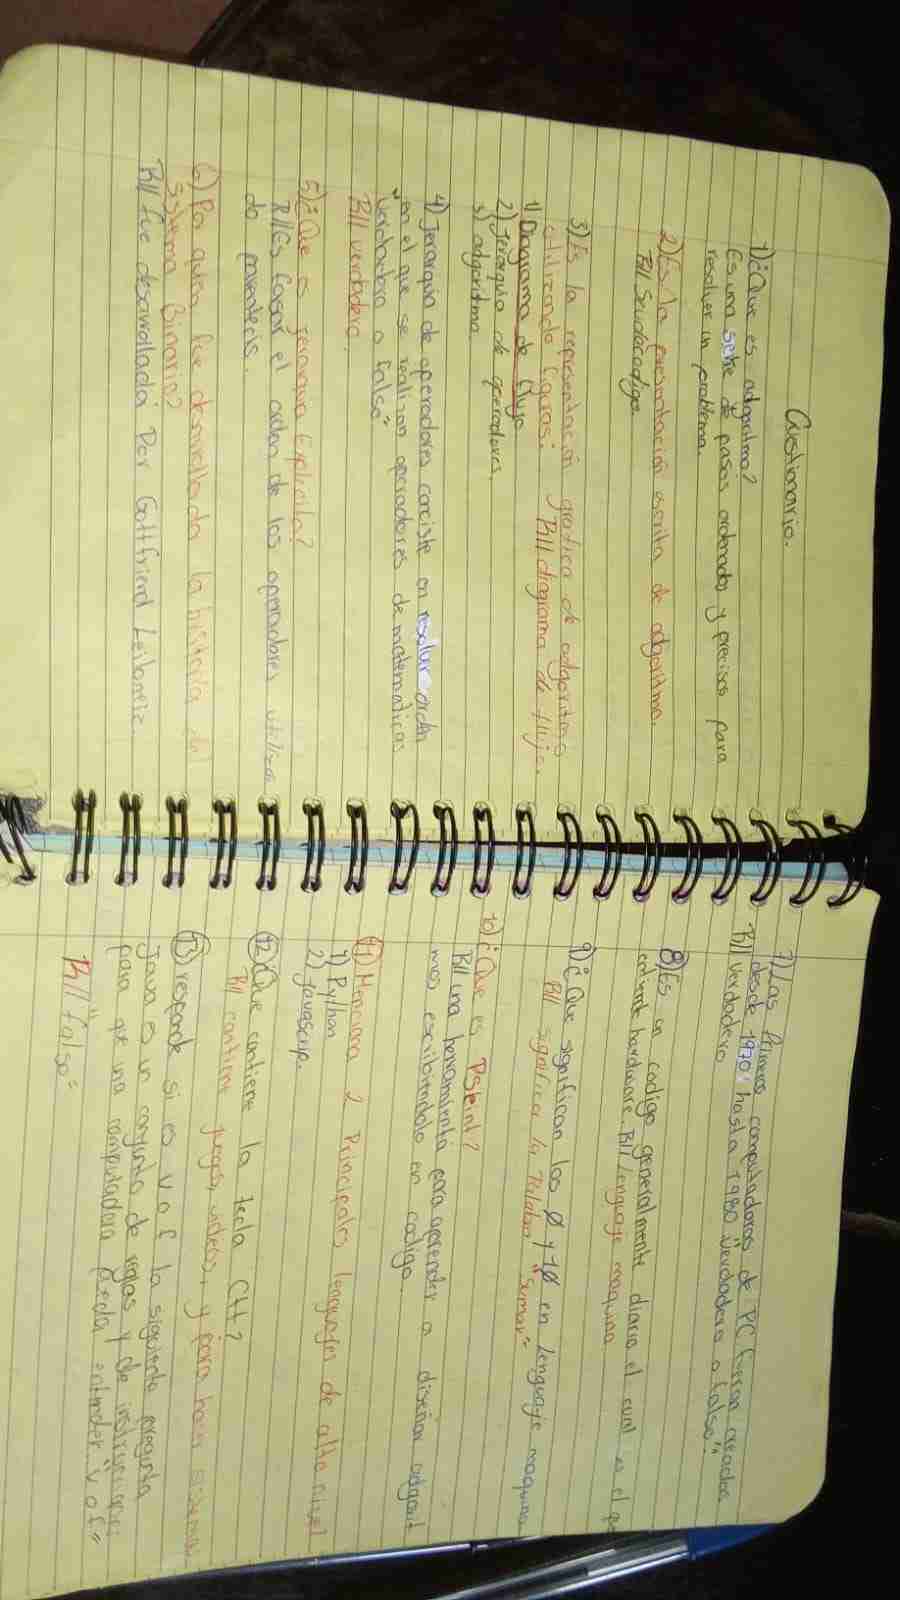 Cuestionario.
1) ¿Que es adgoritmo?
Es una serie de pasos ordenados y precisos para
resolver un problema.
2) Es la presentación escrita de adgoritmo.
R// Seudocodigo
3) Es la representación grafica de adgoritmo
utilizando figuras: R// diagrama de flujo.
1) Diagrama de flujo
2) Jerarquia de operadores.
3) adgoritmo
4) Jerarquia de operadores conciste en resolver orden
en el que se realizan operadores de matematicas
"verdadero o falso"
R// verdadero.
5) ¿Que es jerarquia Explicita?
R// Es forzar el orden de los operadores utiliza
do parentecis.
6) Por quien fue desarrollada la historia del
sistema Binario?
R// fue desarrollada Por Gottfriend Leilbneiz.
7) Las Primeras computadoras de PC fueron creadas
desde 1970 hasta 1980 "verdadero o falso"
R// verdadero
8) Es un codigo generalmente diario el cual es el que
entiende hardware. R// Lenguaje maquina
9) ¿Que significan los 0 y 10 en Lenguaje maquina
R// significa la Palabra "sumar"
10) ¿Que es PSeint?
R// una herramienta para aprender a diseñar adgorit
mos escribiendolo en codigo.
11) Menciona 2 Principales lenguajes de alto nivel
1) Python
2) Javascrip.
12) Que contiene la tecla C++?
R// contiene juegos, videos, y para hacer sistemas
13) responde si es v o f la siguiente pregunta
Java es un conjunto de reglas y de instrucciones
para que una computadora pueda entender "v o f"
R// "falso"